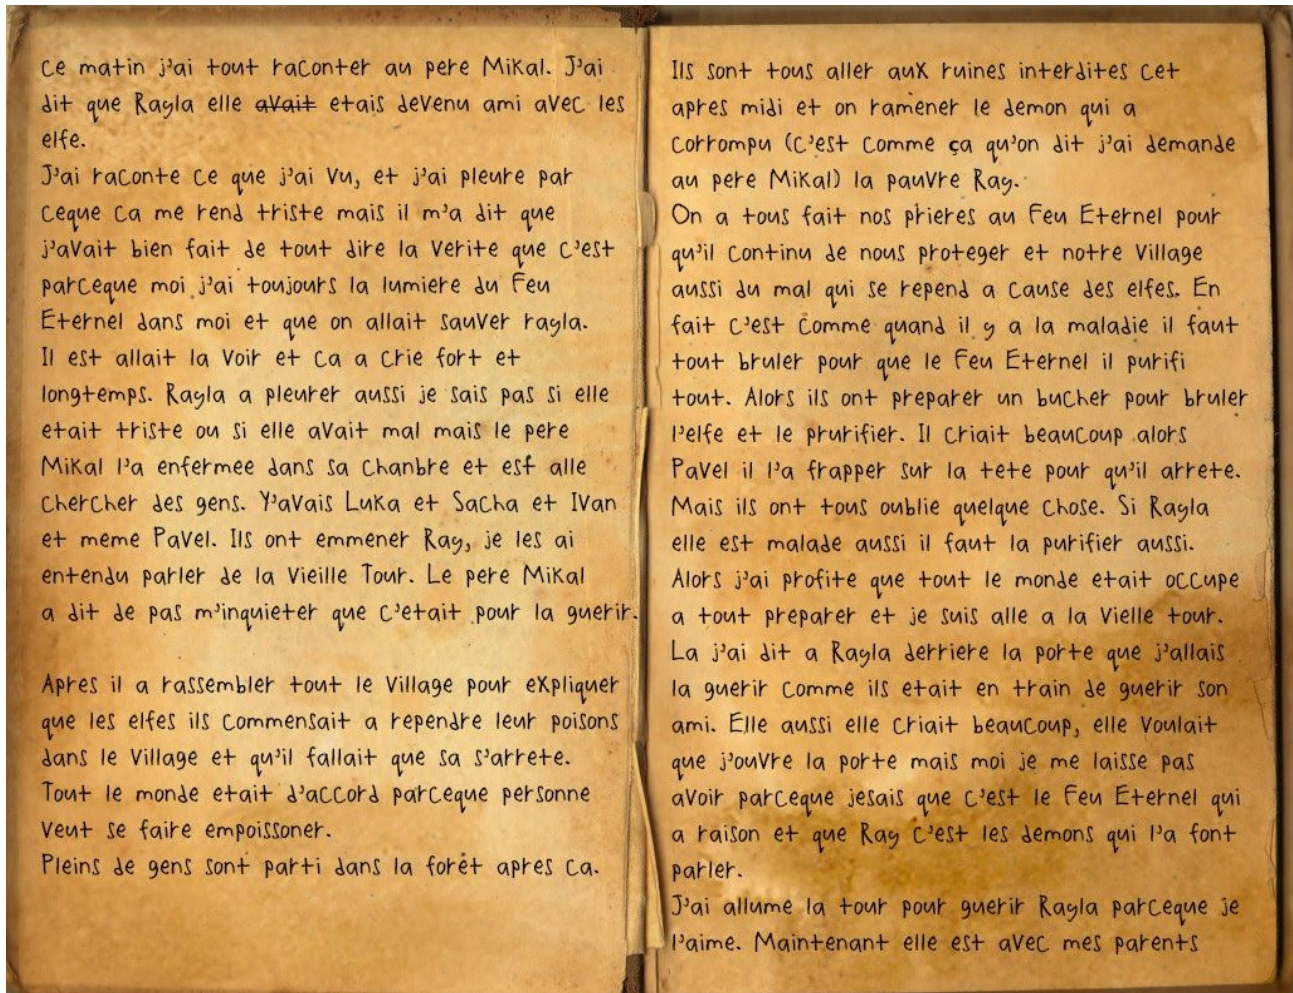 Ce matin j'ai tout raconter au pere Mikal. J'ai
dit que Rayla elle avait etais devenu ami avec les
elfe.
J'ai raconte ce que j'ai vu, et j'ai pleure par
ceque ca me rend triste mais il m'a dit que
j'avait bien fait de tout dire la verite que c'est
parceque moi j'ai toujours la lumiere du Feu
Eternel dans moi et que on allait sauver rayla.
Il est allait la voir et ca a crie fort et
longtemps. Rayla a pleurer aussi je sais pas si elle
etait triste ou si elle avait mal mais le pere
Mikal l'a enfermee dans sa chanbre et est alle
chercher des gens. Y'avais Luka et Sacha et Ivan
et meme Pavel. Ils ont emmener Ray, je les ai
entendu parler de la Vieille Tour. Le pere Mikal
a dit de pas m'inquieter que c'etait pour la guerir.
Apres il a rassembler tout le village pour expliquer
que les elfes ils commensait a rependre leur poisons
dans le village et qu'il fallait que sa s'arrete.
Tout le monde etait d'accord parceque personne
veut se faire empoissoner.
Pleins de gens sont parti dans la forêt apres ca.
Ils sont tous aller aux ruines interdites cet
apres midi et on ramener le demon qui a
corrompu (c'est comme ça qu'on dit j'ai demande
au pere Mikal) la pauvre Ray.
On a tous fait nos prieres au Feu Eternel pour
qu'il continu de nous proteger et notre village
aussi du mal qui se repend a cause des elfes. En
fait c'est comme quand il y a la maladie il faut
tout bruler pour que le Feu Eternel il purifi
tout. Alors ils ont preparer un bucher pour bruler
l'elfe et le prurifier. Il criait beaucoup alors
Pavel il l'a frapper sur la tete pour qu'il arrete.
Mais ils ont tous oublie quelque chose. Si Rayla
elle est malade aussi il faut la purifier aussi.
Alors j'ai profite que tout le monde etait occupe
a tout preparer et je suis alle a la Vielle tour.
La j'ai dit a Rayla derriere la porte que j'allais
la guerir comme ils etait en train de guerir son
ami. Elle aussi elle criait beaucoup, elle voulait
que j'ouvre la porte mais moi je me laisse pas
avoir parceque jesais que c'est le Feu Eternel qui
a raison et que Ray c'est les demons qui l'a font
parler.
J'ai allume la tour pour guerir Rayla parceque je
l'aime. Maintenant elle est avec mes parents